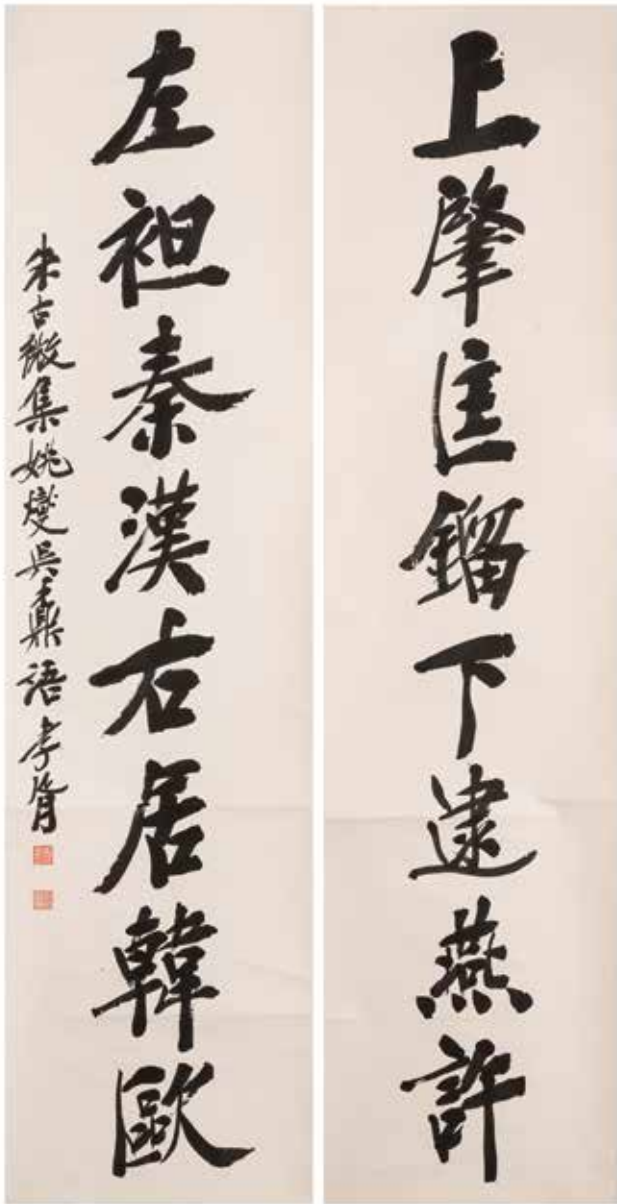 上肇匡鎦下逮燕許
左袒秦漢右居韓歐
朱古微集姚燮吳鼒語孝胥